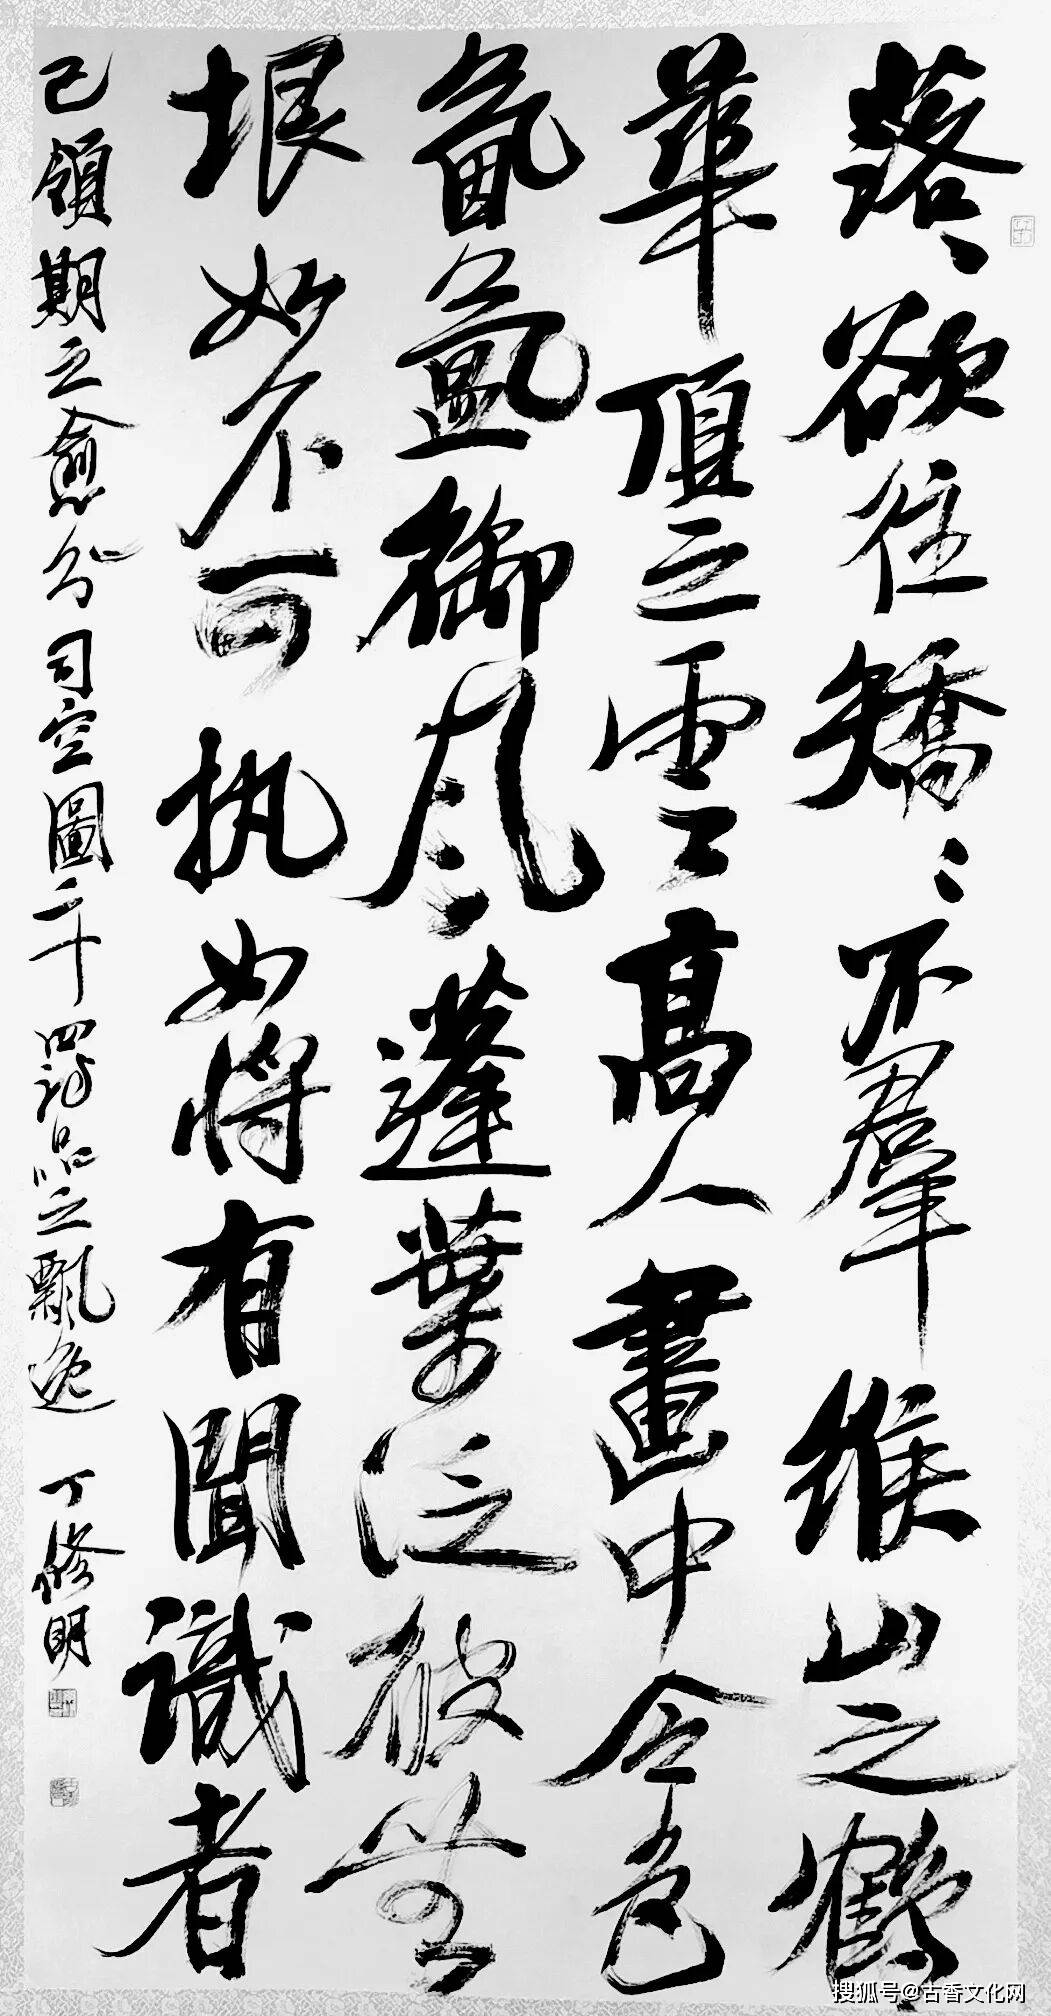 落〻欲往矯〻不羣緱山之鶴
華頂之雲高人畫中令色
氤氳御風蓬葉泛彼無
垠如不可执如將有聞識者
已領期之愈分司空圖二十四詩品之飄逸 丁修明
搜狐号@古香文化网